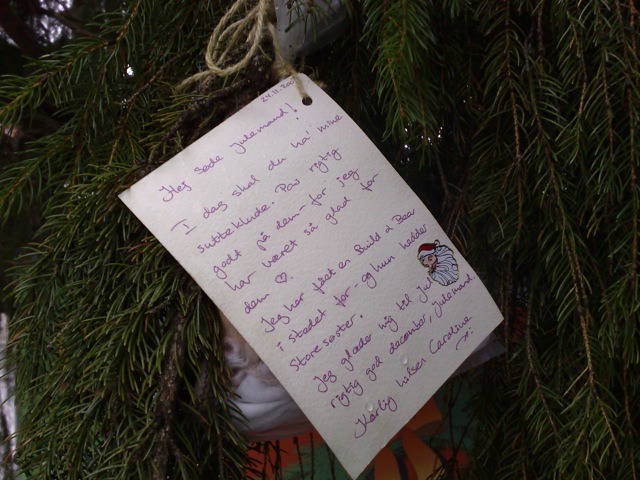 24.11.200
Hej søde Julemand!
I dag skal du ha' mine
sutteklude. Pas rigtig
godt på dem - for jeg
har været så glad for
dem ♡.
Jeg har fået en Build a Bear
i stedet for - og hun hedder
Storesøster.
Jeg glæder mig til Jul
rigtig god december, Julemand
Kærlig hilsen Caroline